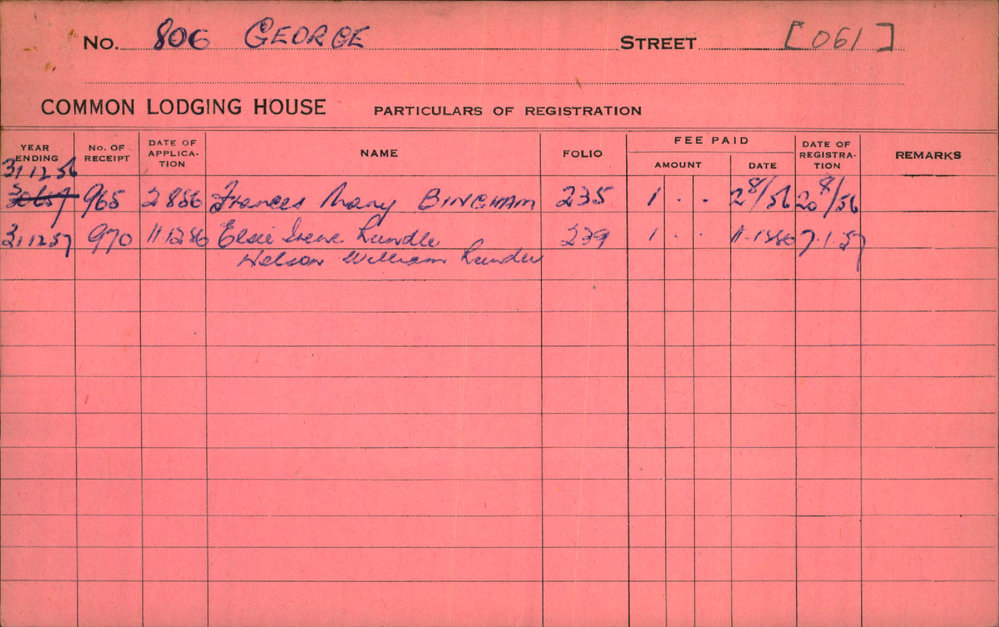 No. 806 GEORGE STREET [061]
COMMON LODGING HOUSE PARTICULARS OF REGISTRATION
YEAR ENDING No. OF RECEIPT DATE OF APPLICA-TION NAME FOLIO FEE PAID AMOUNT DATE DATE OF REGISTRA-TION REMARKS
31 12 56
30 6 57 965 2 8 56 Frances Mary BINGHAM 235 1 . . 2 8/56 20 8/56
31 12 57 970 11 12 56 Elsie Irene Rundle 239 1 . . 11.12.56 7.1.57
Nelson William Rundle